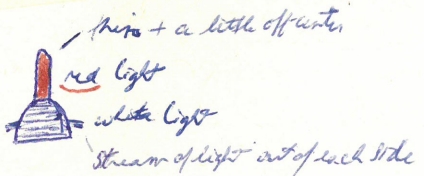 thin + a little off center
red light
white light
Stream of light out of each side